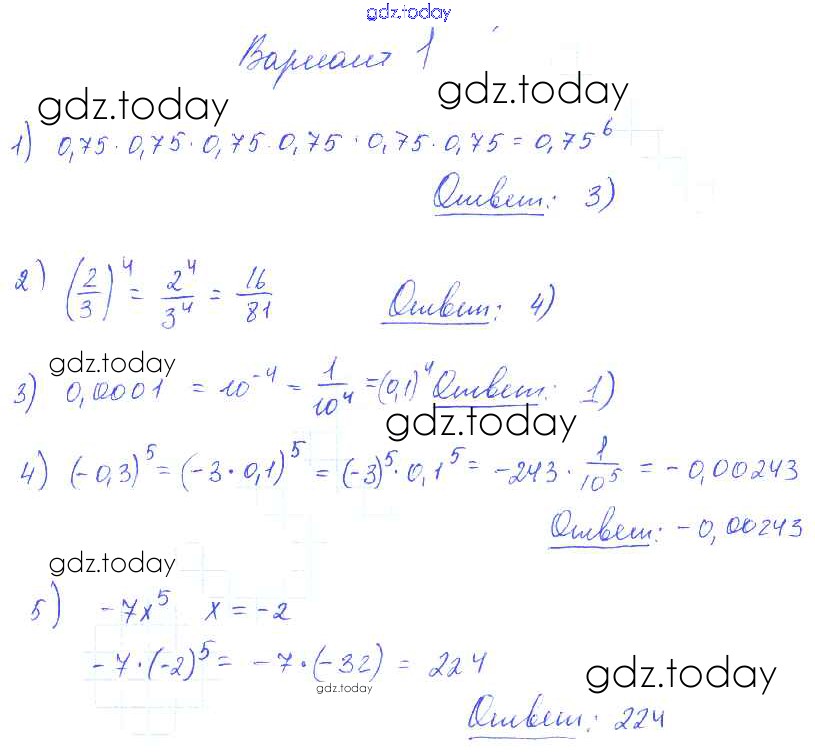 gdz.today
Вариант 1
gdz.today gdz.today
1) 0,75 · 0,75 · 0,75 · 0,75 · 0,75 · 0,75 = 0,75⁶
Ответ: 3)
2) (2/3)⁴ = 2⁴/3⁴ = 16/81 Ответ: 4)
gdz.today
3) 0,0001 = 10⁻⁴ = 1/10⁴ = (0,1)⁴ Ответ: 1)
gdz.today
4) (-0,3)⁵ = (-3 · 0,1)⁵ = (-3)⁵ · 0,1⁵ = -243 · 1/10⁵ = -0,00243
Ответ: -0,00243
gdz.today
5) -7x⁵ x = -2
-7 · (-2)⁵ = -7 · (-32) = 224
gdz.today gdz.today
Ответ: 224